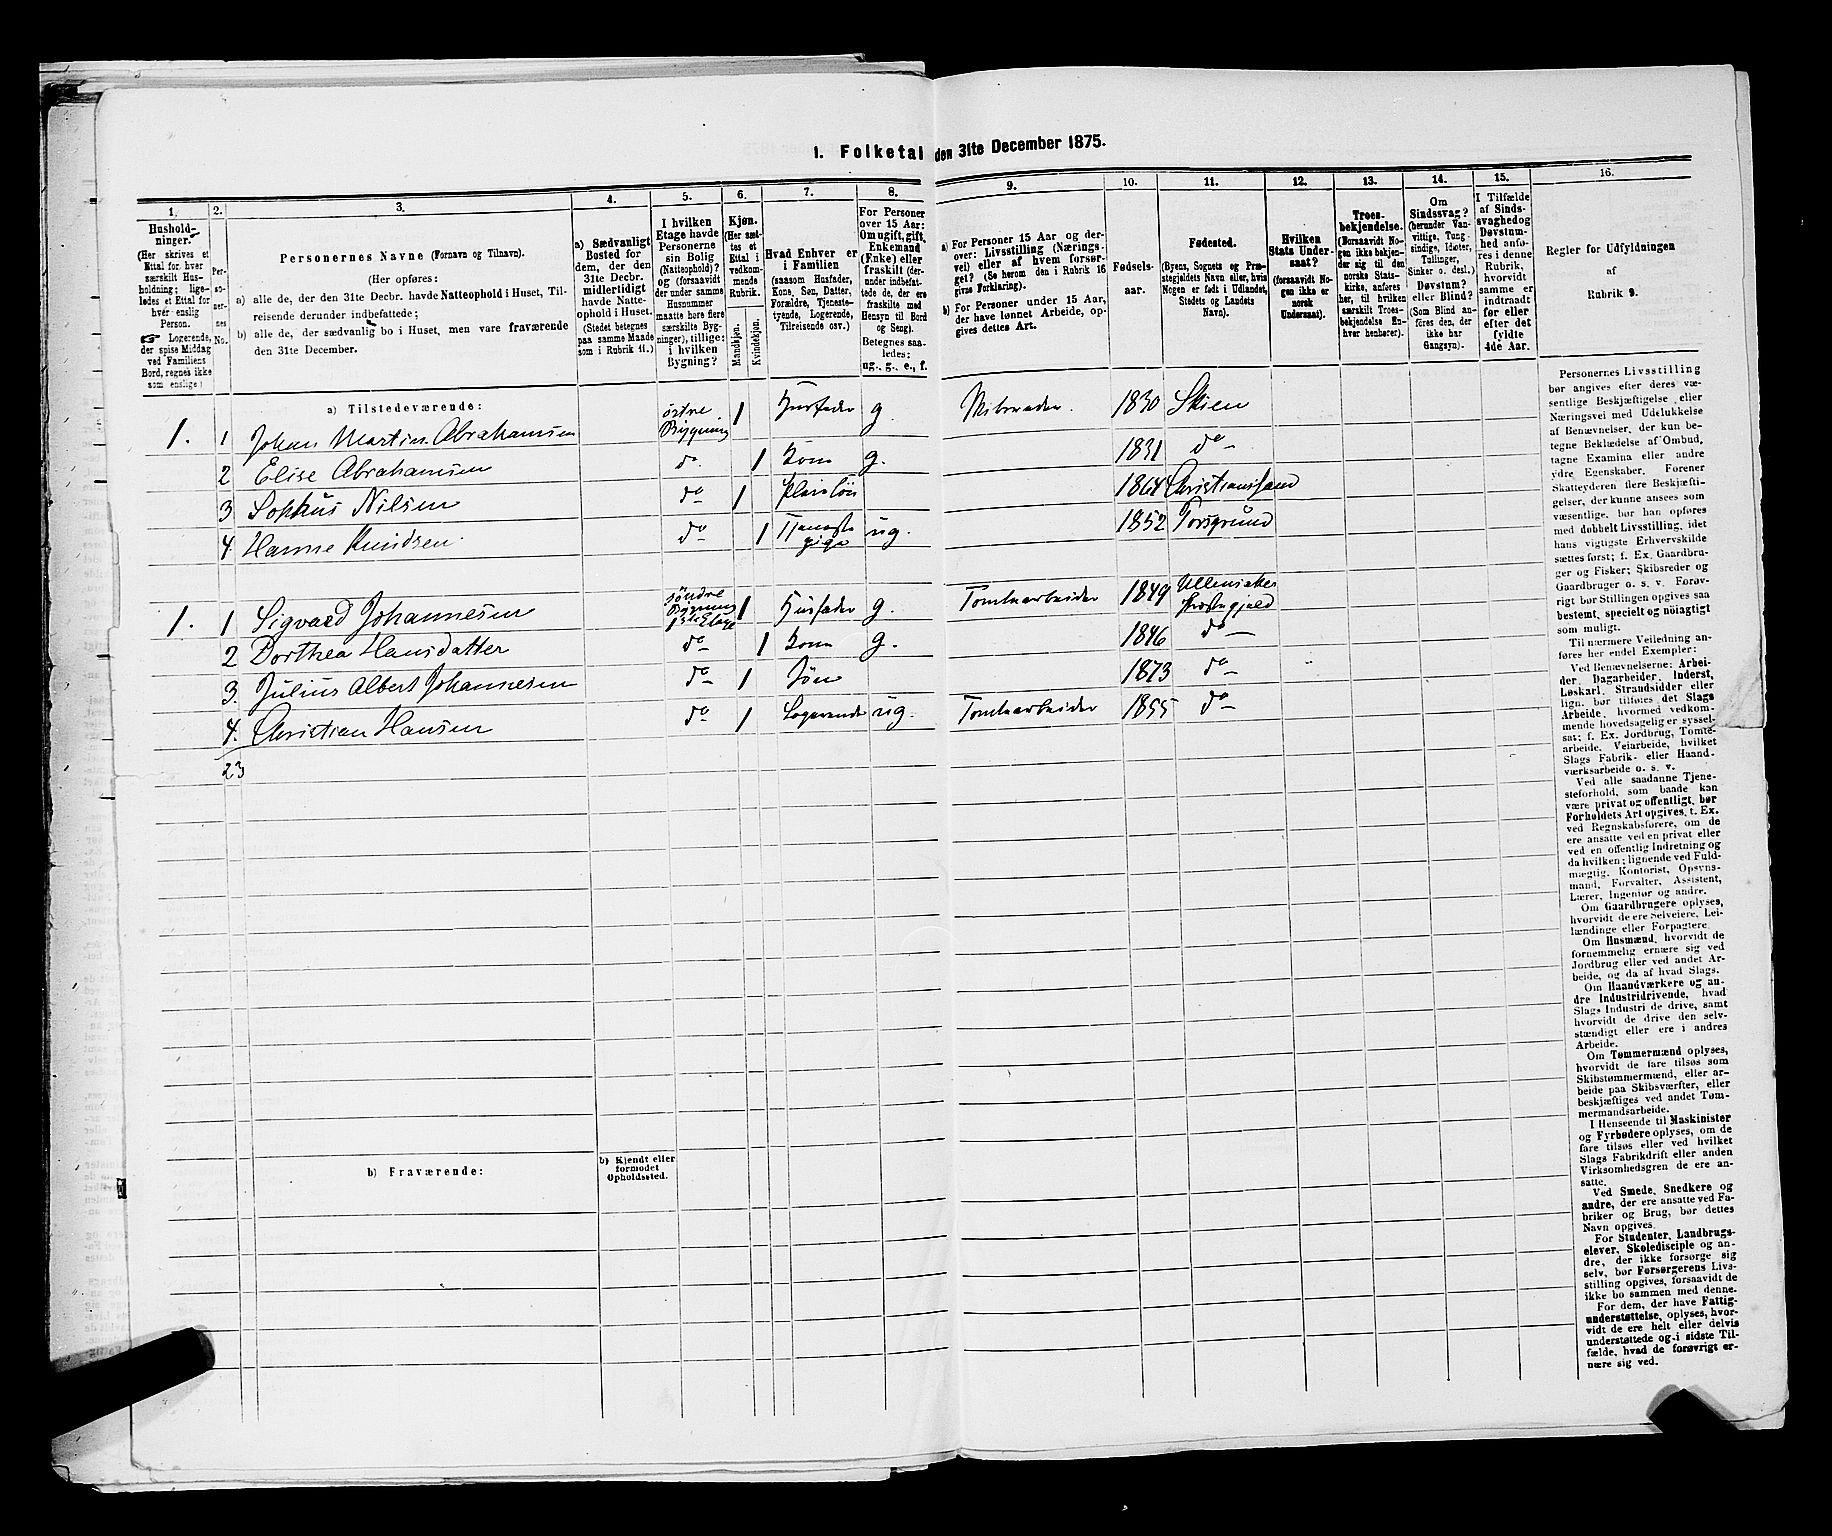 1. Folketal den 31te December 1875.
1. 2. 3. 4. 5. 6. 7. 8. 9. 10. 11. 12. 13. 14. 15. 16.
Hushold-
ninger.
(Her skrives et
Ettal for hver
særskilt Hus-
holdning; lige-
ledes et Ettal for
hver enslig
Person.
☞ Logerende,
der spise Middag
ved Familiens
Bord, regnes ikke
som enslige.)
Per-
so-
ner-
nes
No.
Personernes Navne (Fornavn og Tilnavn).
(Her opføres:
a) alle de, der den 31te Decbr. havde Natteophold i Huset, Til-
reisende derunder indbefattede;
b) alle de, der sædvanlig bo i Huset, men vare fraværende
den 31te December.
a) Sædvanligt
Bosted for
dem, der den
31te Decbr.
midlertidigt
havde Natte-
ophold i Huset.
(Stedet betegnes
paa samme Maade
som i Rubrik 11.)
I hvilken
Etage havde
Personerne
sin Bolig
(Natteophold)?
og (forsaavidt
der under samme
Husnummer
maatte høre flere
særskilte Byg-
ninger), tillige:
i hvilken
Bygning?
Kjøn.
(Her sæt-
tes et
Ettal i
vedkom-
mende
Rubrik.
Mandkjøn.
Kvindekjøn.
Hvad Enhver er
i Familien
(saasom Husfader,
Kone, Søn, Datter,
Forældre, Tjeneste-
tyende, Logerende,
Tilreisende osv.)
For Personer
over 15 Aar:
Om ugift, gift,
Enkemand
(Enke) eller
fraskilt (der-
under indbefat-
tede de, der ere
fraskilte med
Hensyn til Bord
og Seng).
Betegnes saa-
ledes:
ug., g., e., f.
a) For Personer 15 Aar og der-
over: Livsstilling (Nærings-
vei) eller af hvem forsør-
get? (Se herom den i Rubrik 16
givne Forklaring).
b) For Personer under 15 Aar,
der have lønnet Arbeide, op-
gives dettes Art.
Fødsels-
aar.
Fødested.
(Byens, Sognets og Præ-
stegjældets Navn eller, hvis
Nogen er født i Udlandet,
Stedets og Landets
Navn).
Hvilken
Stats Under-
saat?
(forsaavidt No-
gen ikke er
norsk
Undersaat).
Troes-
bekjendelse.
(Forsaavidt No-
gen ikke bekjen-
der sig til den
norske Stats-
kirke, anføres
her, til hvilken
særskilt Troes-
bekjendelse En-
hver henhører).
Om
Sindssvag?
(herunder Van-
vittige, Tung-
sindige, Idioter,
Tullinger,
Sinker o. desl.)
Døvstum?
eller Blind?
(Som Blind an-
føres den, der
ikke har
Gangsyn).
I Tilfælde
af Sinds-
svaghed og
Døvstum-
hed anfø-
res i denne
Rubrik,
hvorvidt
samme er
indtraadt
før eller
efter det
fyldte
4de Aar.
Regler for Udfyldningen
af
Rubrik 9.
a) Tilstedeværende:
1. 1 Johan Martin Abrahamsen østre Bygning 1 Husfader g 1830 Skien
2 Elise Abrahamsen do. 1 Kone g. 1831 do
3 Sophus Nilsen do 1 Pleiesøn 1864 Christianssand
4. Hanne Knudsen do 1 ug. 1852 Porsgrund
1. 1 Sigvard Johannesen søndre Bygning 1ste Etage 1 Husfader g. Tomtearbeider 1849 Ullensaker Prestegjeld
2 Dorthea Hansdatter do 1 Kone g. 1846 do
3. Julius Albert Johannesen do 1 Søn 1873 do
4. Christian Hansen do 1 Logerende ug. Tomtearbeider 1855 do
23
b) Fraværende:
b) Kjendt eller
formodet
Opholdssted.
Personernes Livsstilling
bør angives efter deres væ-
sentlige Beskjæftigelse eller
Næringsvei med Udelukkelse
af Benævnelser, der kun be-
tegne Beklædelse af Ombud,
tagne Examina eller andre
ydre Egenskaber. Forener
Skatteyderen flere Beskjæfti-
gelser, der kunne ansees som
væsentlige, bør han opføres
med dobbelt Livsstilling, idet
hans vigtigste Erhvervskilde
sættes først; f. Ex. Gaardbru-
ger og Fisker; Skibsreder og
Gaardbruger o. s. v. Forøv-
rigt bør Stillingen opgives saa
bestemt, specielt og nöiagtigt
som muligt.
Til nærmere Veiledning an-
føres her endel Exempler:
Ved Benævnelserne: Arbei-
der, Dagarbeider, Inderst,
Løskarl, Strandsidder eller
lign. bør tilføies det Slags
Arbeide, hvormed vedkom-
mende hovedsagelig er syssel-
sat; f. Ex. Jordbrug, Tomte-
arbeide, Veiarbeide, hvilket
Slags Fabrik- eller Haand-
værksarbeide o. s. v.
Ved alle saadanne Tjene-
steforhold, som baade kan
være privat og offentligt, bør
Forholdets Art opgives, t. Ex.
ved Regnskabsførere, om de
ere ansatte ved en privat eller
ved en offentlig Indretning og
da hvilken; lignende ved Fuld-
mægtig, Kontorist, Opsyns-
mand, Forvalter, Assistent,
Lærer, Ingeniør og andre.
Om Gaardbrugere oplyses,
hvorvidt de ere Selveiere, Lei-
lændinge eller Forpagtere.
Om Husmænd, hvorvidt de
fornemmelig ernære sig ved
Jordbrug eller ved andet Ar-
beide, og da af hvad Slags.
Om Haandværkere og an-
dre Industridrivende, hvad
Slags Industri de drive, samt
hvorvidt de drive den selv-
stændigt eller ere i andres
Arbeide.
Om Tømmermænd oplyses,
hvorvidt de fare tilsøs som
Skibstømmermænd, eller ar-
beide paa Skibsværfter, eller
beskjæftiges ved andet Tøm-
mermandsarbeide.
I Henseende til Maskinister
og Fyrbødere oplyses, om de
fare tilsøs eller ved hvilket
Slags Fabrikdrift eller anden
Virksomhedsgren de ere an-
satte.
Ved Smede, Snedkere og
andre, der ere ansatte ved Fa-
briker og Brug, bør dettes
Navn opgives.
For Studenter, Landbrugs-
elever, Skoledisciple og an-
dre, der ikke forsørge sig
selv, bør Forsørgerens Livs-
stilling opgives, forsaavidt de
ikke bo sammen med denne.
For dem, der have Fattig-
understøttelse, oplyses, hvor-
vidt de ere helt eller delvis
understøttede og i sidste Til-
fælde, hvad de forøvrigt er-
nære sig ved.